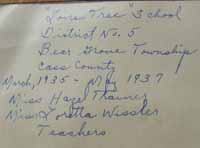 "Lone Tree" School
District No. 5
Bear Grove Township
Cass County
March, 1935 - May 1937
Miss Hazel Thauner
Miss Loretta Wissler
Teachers